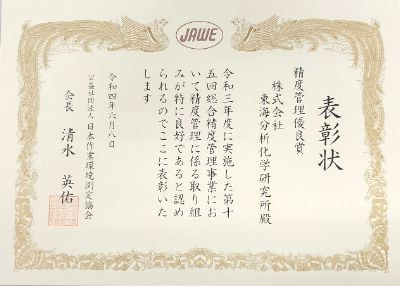 JAWE
表彰状
精度管理優良賞
株式会社
東海分析化学研究所殿
令和三年度に実施した第十
五回総合精度管理事業にお
いて精度管理に係る取り組
みが特に良好であると認め
られるのでここに表彰いた
します
令和四年六月八日
公益社団法人 日本作業環境測定協会
会長 清水 英佑